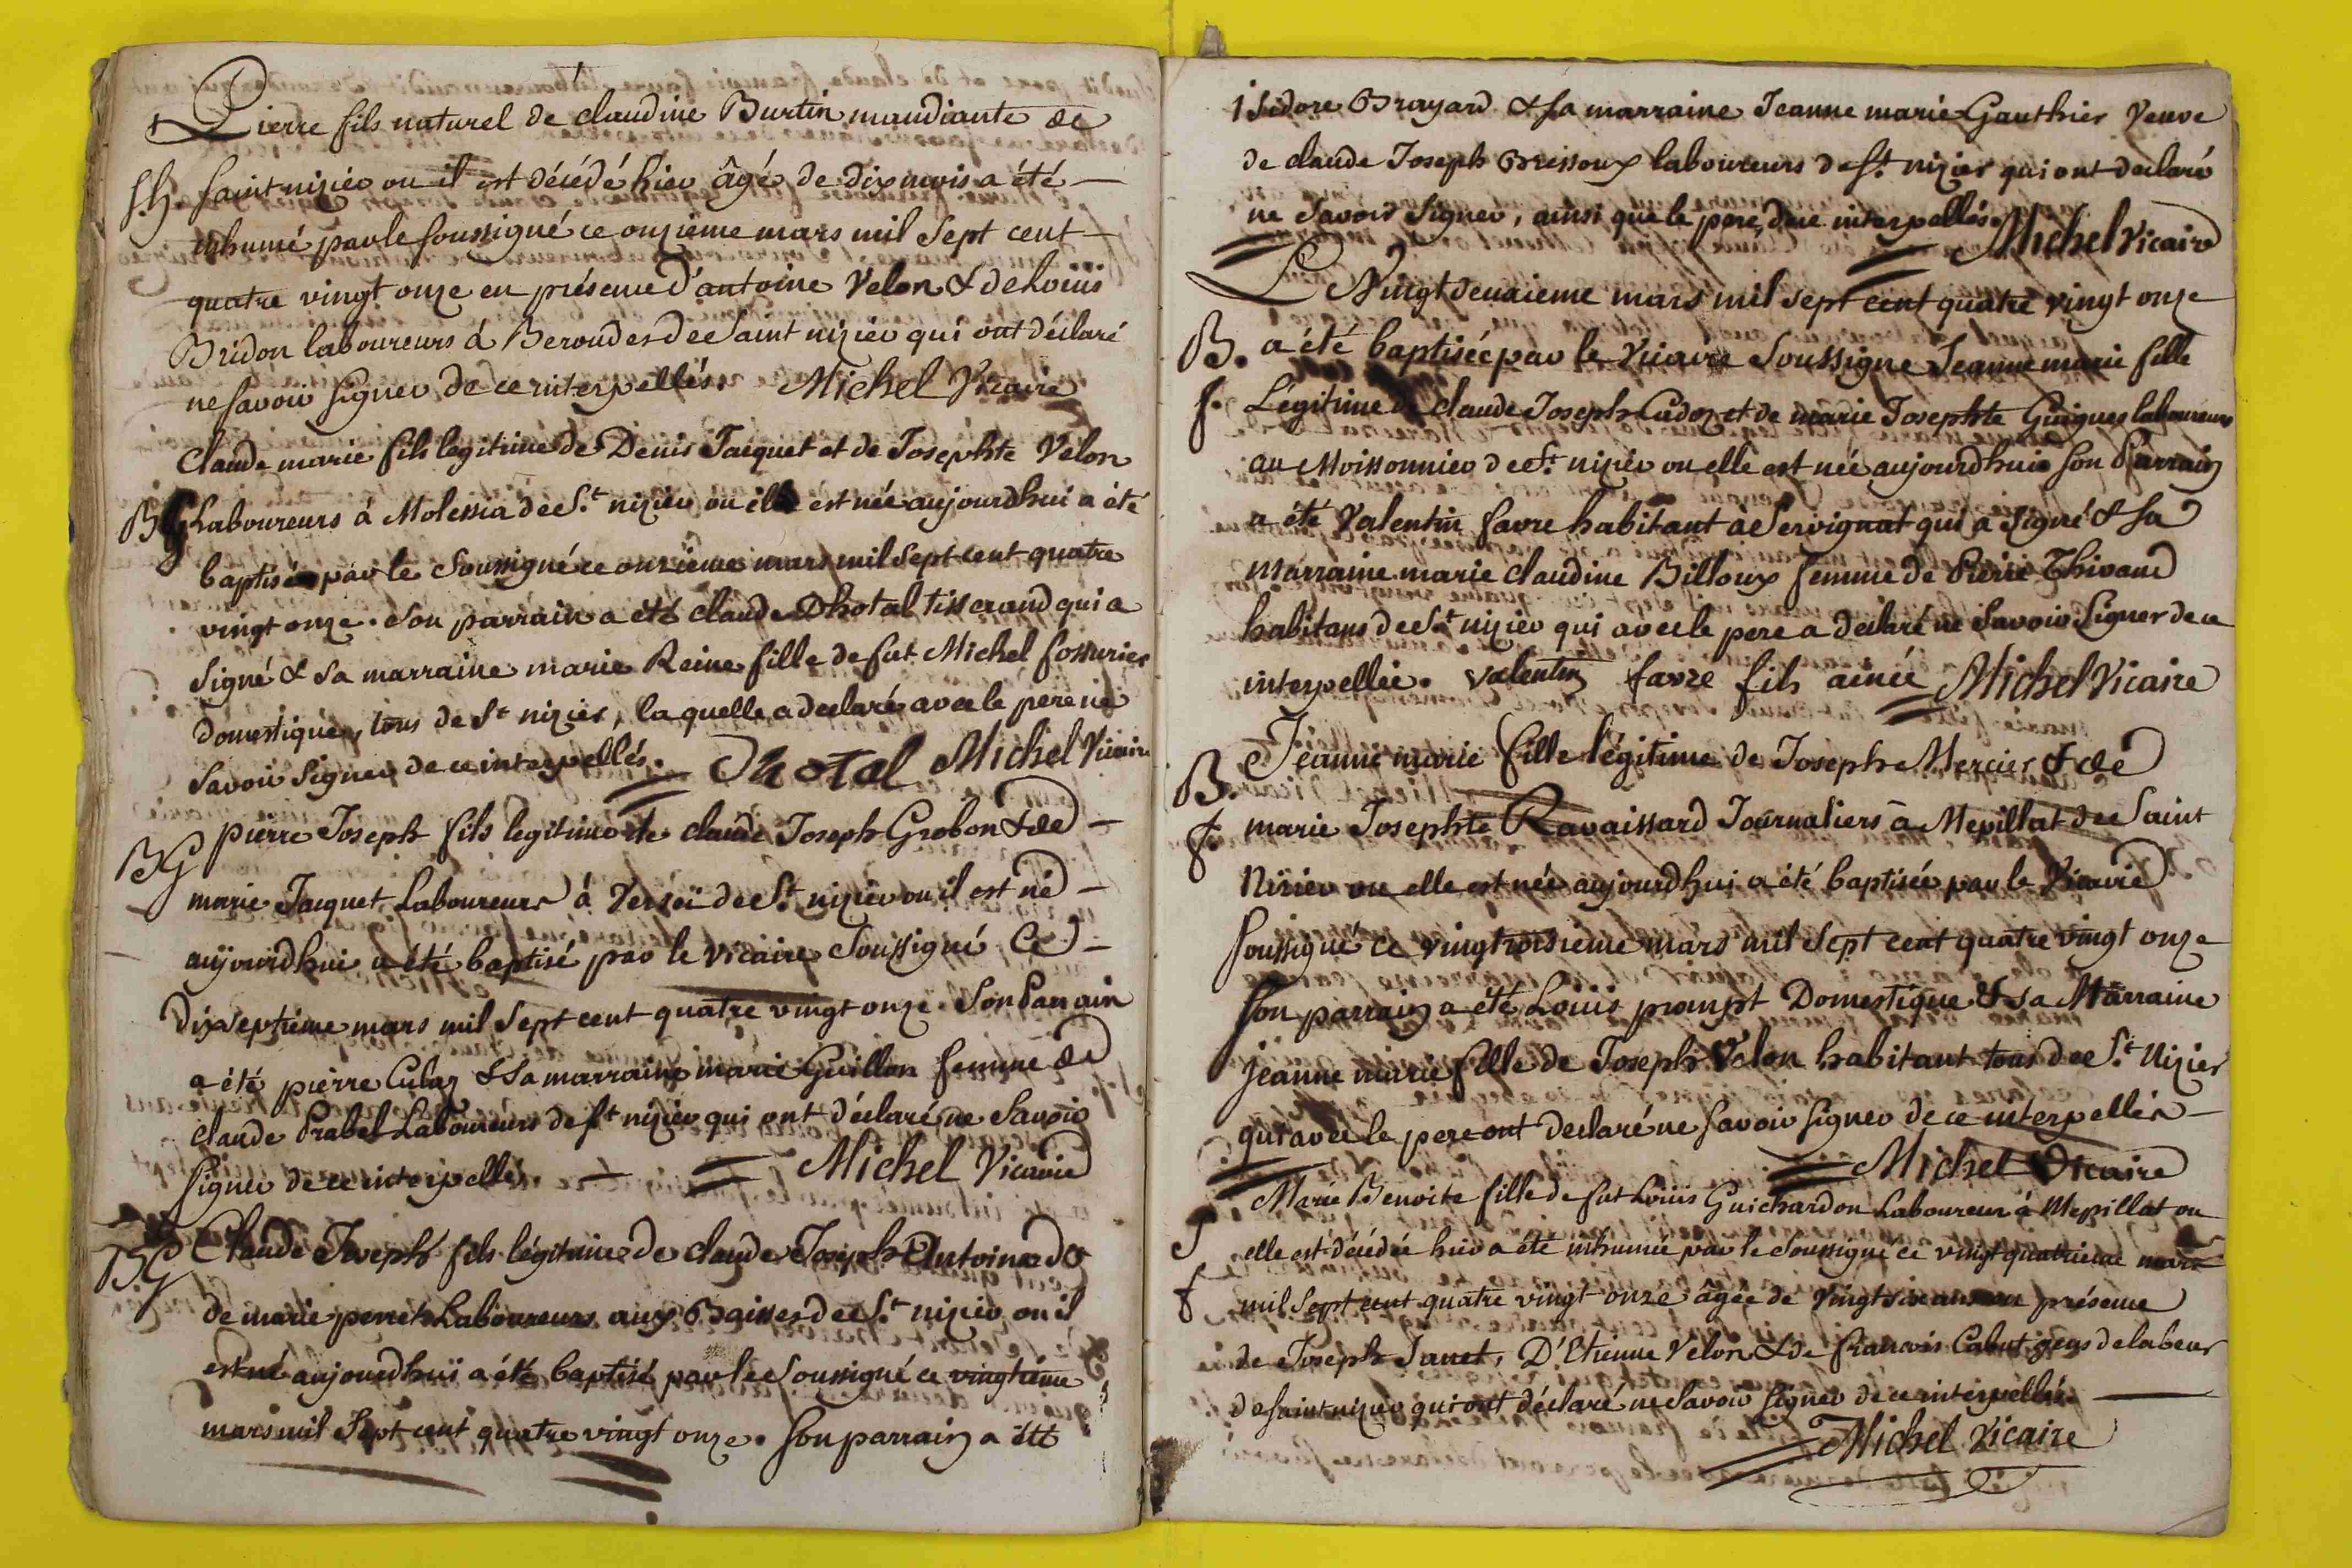 Pierre fils naturel de claudine Burtin mandiante de
S.h. saint nizier ou il est décédé hier âgé de dix mois a été
inhumé par le soussigné ce onzieme mars mil sept cent
quatre vingt onze en présence d'antoine Velon & de Louis
Bridon laboureurs à Beroudes de saint nizier qui ont déclaré
ne savoir signer de ce interpellés. Michel Vicaire
Claude marie fils legitime de Denis Jacquet et de Josephte Velon
BG Laboureurs à Molessia de St nizier ou il est né aujourdhui a été
baptisé par le soussigné ce onzieme mars mil sept cent quatre
vingt onze. son parrain a été claude Dhotal tisserand qui a
signé & sa marraine marie Reine fille de fut Michel fossurier
domestique, tous de St nizier, la quelle a declaré avec le pere ne
savoir signer de ce interpellés. Dhotal Michel Vicaire
BG pierre Joseph fils legitime de claude Joseph Grobon & de
marie Jacquet Laboureurs à Verseï de St nizier ou il est né
aujourdhui a été baptisé par le vicaire soussigné Ce
dixseptieme mars mil sept cent quatre vingt onze. Son Parrain
a été pierre Culaz & sa marraine marie Guillon femme de
claude Prabel Laboureurs de St nizier qui ont déclaré ne savoir
signer de ce interpellés. Michel Vicaire
BG Claude Joseph fils légitime de claude Joseph Antoinard &
de marie perret Laboureurs aux Baisses de St nizier ou il
est né aujourdhuï a été baptisé par le soussigné ce vingtième
mars mil sept cent quatre vingt onze. son parrain a été
isidore Brayard & sa marraine Jeanne marie Gauthier Veuve
de claude Joseph Bressoux laboureurs de St nizier qui ont declaré
ne savoir signer, ainsi que le pere, de ce interpellés. Michel Vicaire
Le Vingt deuxieme mars mil sept cent quatre vingt onze
B. a été baptisée par le Vicaire soussigné Jeanne marie fille
f. Légitime de claude Joseph Cudoz et de marie Josephte Guigues laboureurs
au Moissonnier de St nizier ou elle est née aujourdhui son Parrain
a été Valentin favre habitant de Servignat qui a signé & sa
Marraine marie claudine Billoux femme de Pierre Thivaud
habitans de St nizier qui avec le pere a declaré ne savoir signer de ce
interpellée. valentin favre fils ainée Michel Vicaire
B. Jeanne marie fille légitime de Joseph Mercier & de
f marie Josephte Ravaissard Journaliers à Mepillat de Saint
Nizier ou elle est née aujourdhui a été baptisée par le Vicaire
soussigné ce vingtroisieme mars mil sept cent quatre vingt onze
son parrain a été Louis prompt Domestique & sa Marraine
jeanne marie fille de Joseph Velon habitant tous de St Nizier
qui avec le pere ont declaré ne savoir signer de ce interpellés
Michel Vicaire
S Marie Benoite fille de fut Louis Guichardon Laboureur à Mepillat ou
elle est décédée hier a été inhumée par le soussigné ce vingt quatrieme mars
f mil sept cent quatre vingt onze âgée de Vingt six ans en présence
de Joseph Janet, D'Etienne Velon & de francois Cabut gens de labeur
de saint nizier qui ont déclaré ne savoir signer de ce interpellés.
Michel Vicaire